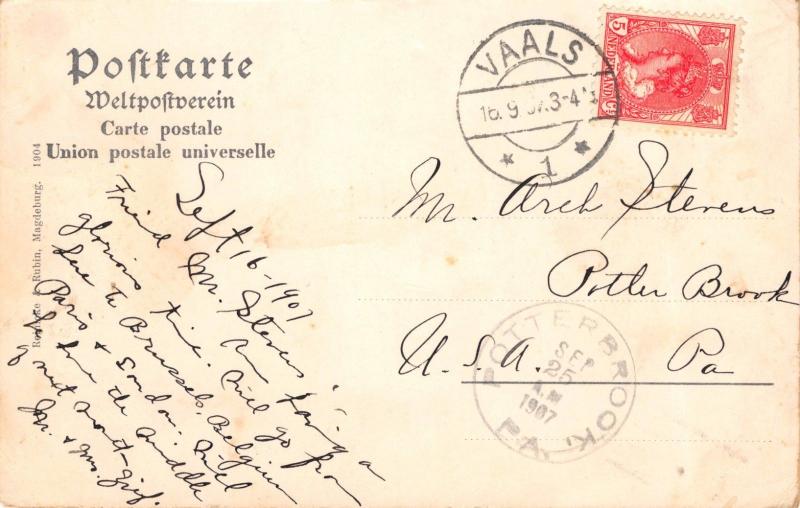 Postkarte
Weltpostverein
Carte postale
Union postale universelle
Rubin, Magdeburg. 1904
VAALS
16.9.07.3-4
1
5 NEDERLAND Ct
Sept 16-1907
Friend Mr. Stevens:-
am having a
glorious time. Will go from
here to Brussels, Belgium
Paris & London. Will
be home the middle
of next month
Mr. & Mrs.
Mr. Arch Stevens
Potter Brook
U.S.A. Pa
POTTERBROOK
SEP
25
A.M
1907
PA.